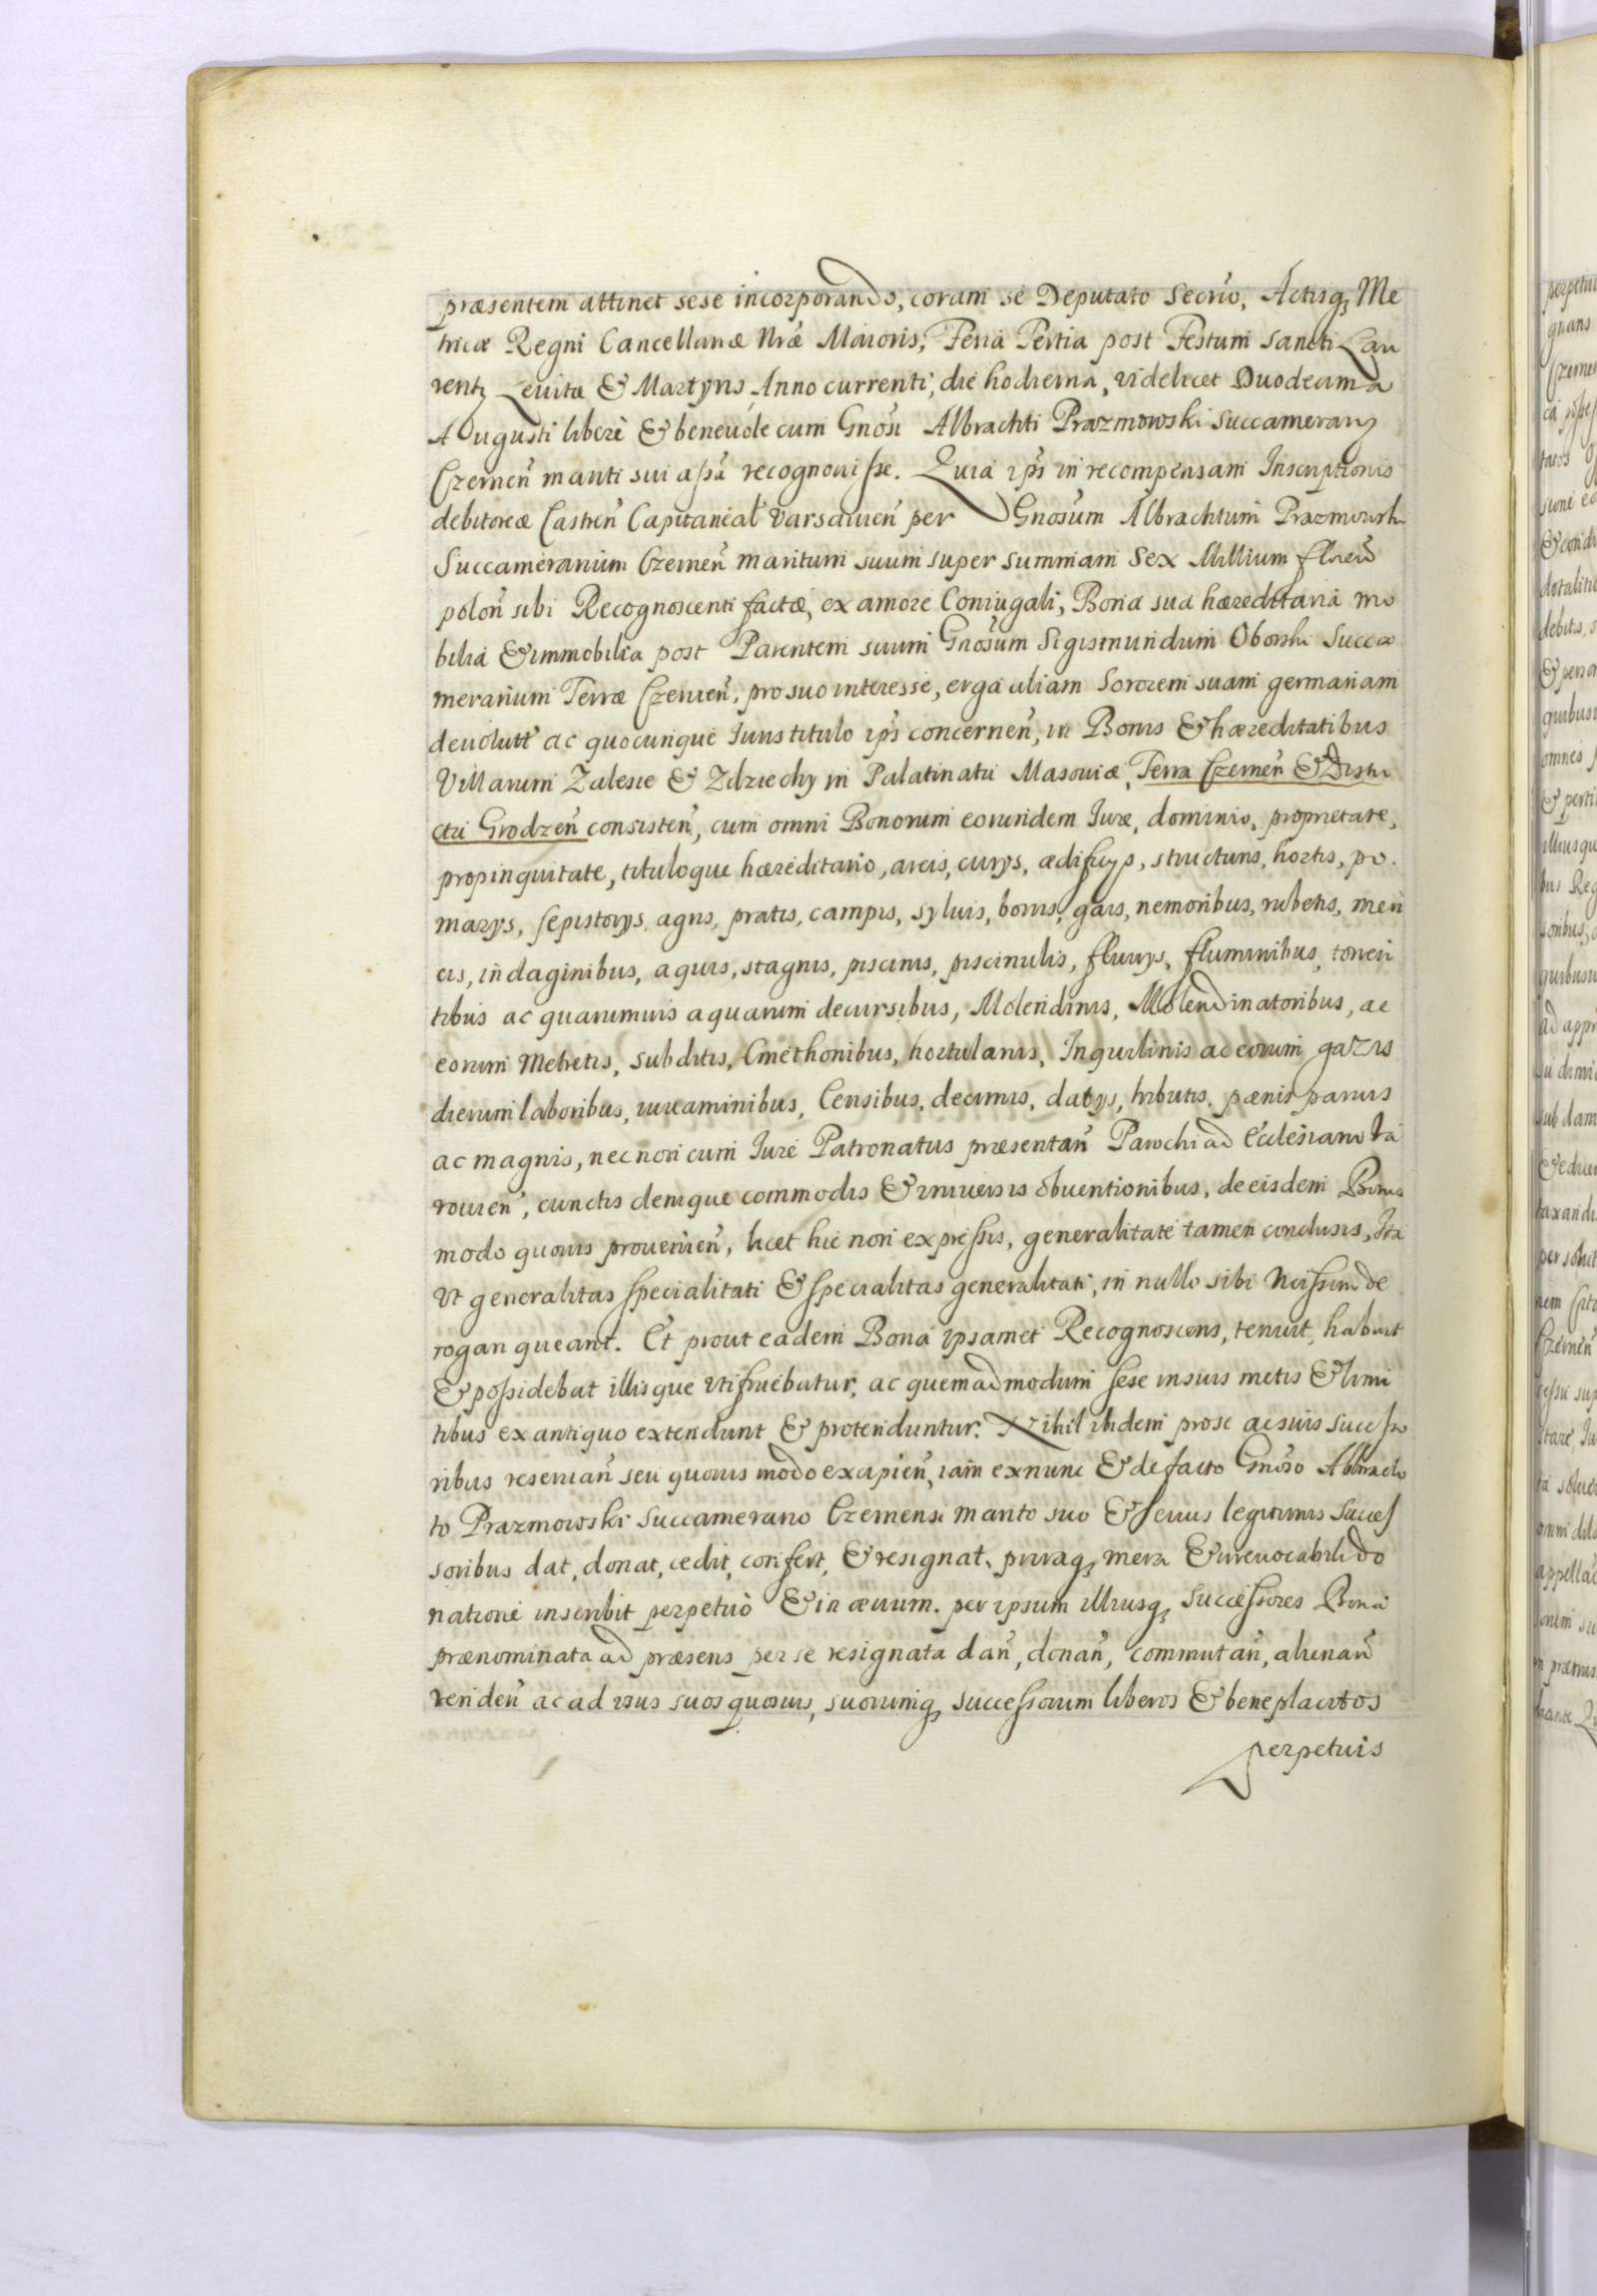 præsentem attinet sese incorporando, coram se Deputato Secrio, Actisq3 Me
tricæ Regni Cancellariæ Nræ Maioris, Feria Tertia post Festum Sancti Lau
rentij Leuitæ & Martyris Anno currenti, die hodierna, videlicet Duodecima
Augusti liberè & beneuole cum Gnosi Albrachti Prazmowski Succamerarij
Czernen̄ mariti sui assã recognouisse. Quia ips̄ in recompensam Inscriptionis
debitoreæ Castren̄ Capitaneal Varsauien̄ per Gnosum Albrachtum Prazmowski
Succamerarium Czernen̄ maritum suum super summam Sex Millium floren̄
polon̄ sibi Recognoscenti factæ, ex amore Coniugali, Bona sua hæreditaria mo
bilia & immobilia post Parentem suum Gnosum Sigismundum Oborski Succa
merarium Terræ Czernen̄, pro suo interesse, erga aliam Sororem suam germanam
deuolutt ac quocunque Iuris titulo ips̄ concernen̄, in Bonis & hæreditatibus
Villarum Zalesie & Zdziechy in Palatinatu Masouiæ, Terra Czernen̄ & Distri
ctu Grodzen̄ consisten̄, cum omni Bonorum eorundem Iure, dominio, proprietate,
propinquitate, tituloque hæreditario, areis, curijs, ædificijs, structuris, hortis, po
marijs, sepistorijs, agris, pratis, campis, syluis, borris, gais, nemoribus, rubetis, meri
cis, indaginibus, aquis, stagnis, piscinis, piscinulis, fluuijs, fluminibus, torren
tibus ac quarumuis aquarum decursibus, Molendinis, Molendinatoribus, ac
eorum Metretis, subditis, Cmethonibus, hortulanis, Inquilinis ac eorum gazis
dierum laboribus, iuuaminibus, Censibus, decimis, datijs, tributis, pænis paruis
ac magnis, nec non cum Iure Patronatus præsentan̄ Parochi ad Ecclesiam Ja
rouien̄, cunctis denique commodis & vniuersis obuentionibus, de eisdem Bonis
modo quouis prouenien̄, licet hic non expressis, generalitate tamen conclusis, Ita
vt generalitas specialitati & specialitas generalitati, in nullo sibi de
rogari queant. Et prout eadem Bona ipsamet Recognoscens, tenuit, habuit
& possidebat illisque vtifruebatur, ac quemadmodum sese in suis metis & limi
tibus ex antiquo extendunt & protenduntur. Nihil ibidem pro se ac suis successo
ribus reseruan̄ seu quouis modo excipien̄, iam ex nunc & de facto Gnoso Albrach
to Prazmowski Succamerario Czernensi marito suo & legitimis succes
soribus dat, donat, cedit, confert, & resignat, puraq3 mera & irreuocabili do
natione inscribit perpetuò & in æuum. per ipsum illiusq3 successores Bona
prænominata ad præsens per se resignata dan̄, donan̄, commutan̄, alienan̄
venden̄ ac ad vsus suos quosuis, suorumq3 successorum liberos & beneplacitos
perpetuis